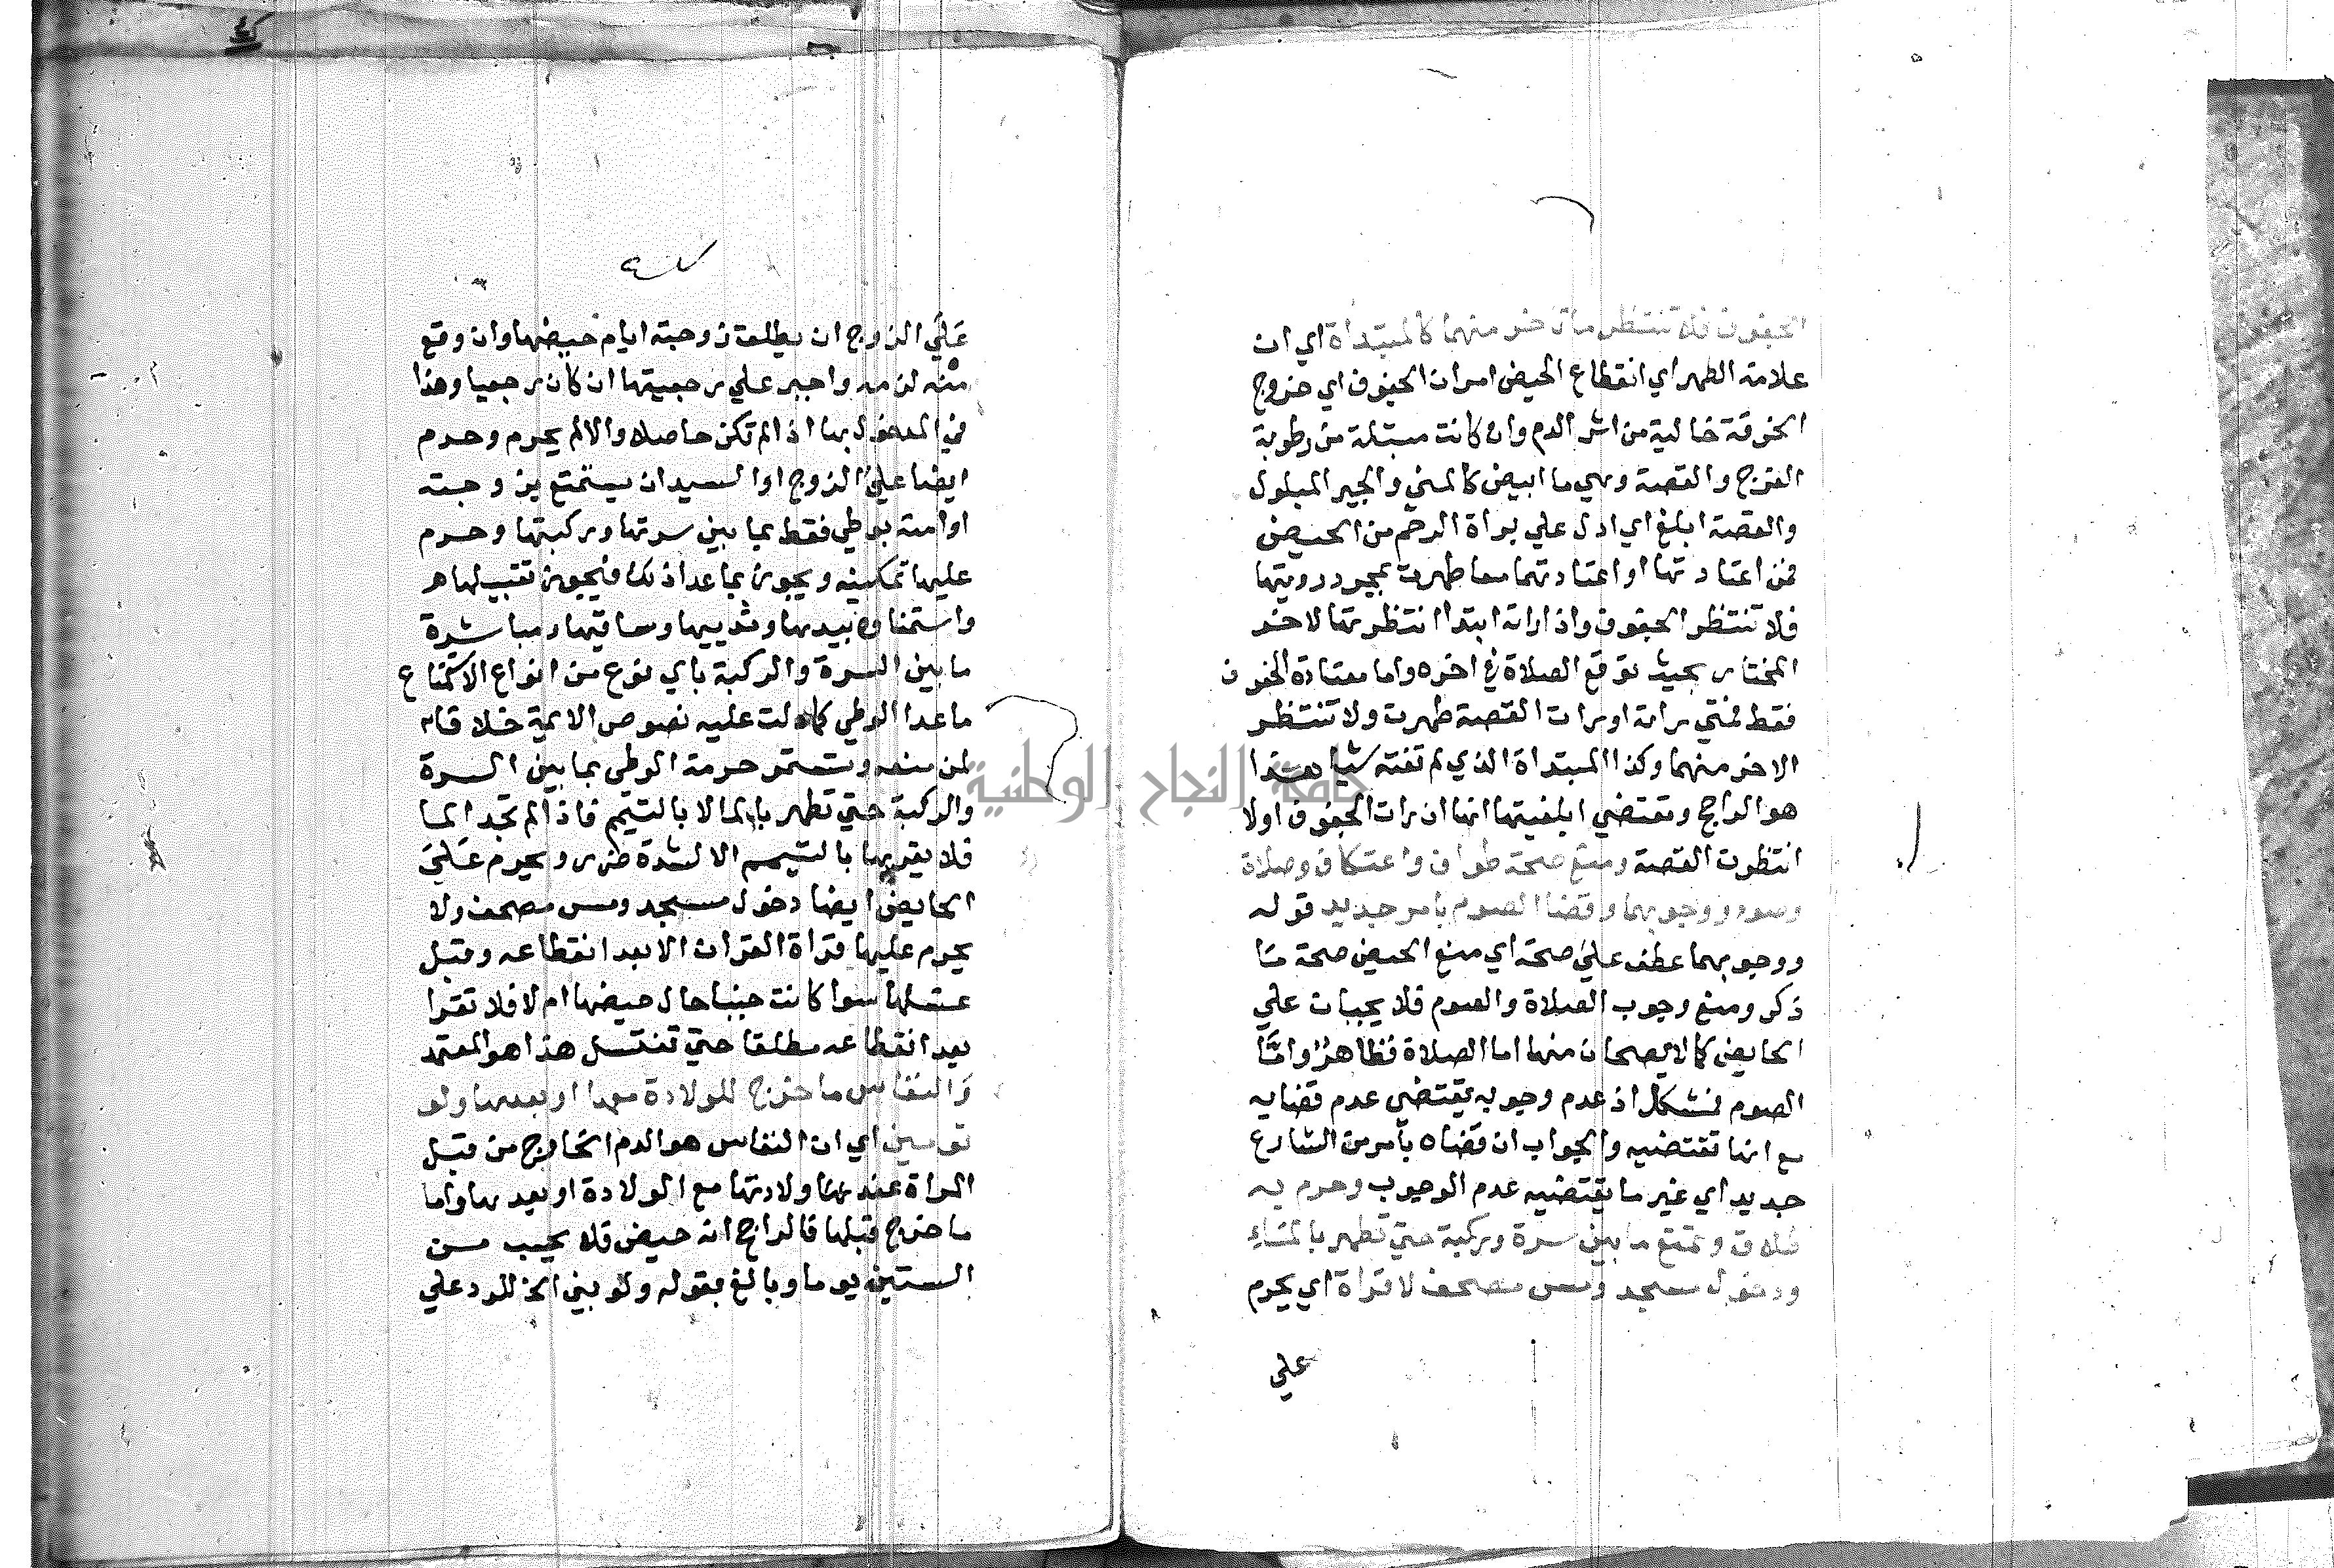 الجفوف فلا تنتظر ما تاخر منهما كالمبتداة اي ان
علامة الطهر اي انقطاع الحيض امران الجفوف اي خروج
الخرقة خالية من اثر الدم وان كانت مبتلة من رطوبة
الفرج والقصة وهي ما ابيض كالمني والجير المبلول
والقصة ابلغ اي ادل علي براة الرحم من الحيض
فمن اعتادتها او اعتادتهما معا طهرت بمجرد رويتها
فلا تنتظر الجفوف واذا راته ابتدا انتظرتها لاخر
المختار بحيث توقع الصلاة في اخره واما معتادة الجفوف
فقط فمتي راته او رات القصة طهرت ولا تنتظر
الاخر منهما وكذا المبتداة الذي لم تفته شيا هذا
هو الراجح وتقتضي ابلغيتها انها ان رات الجفوف اولا
انتظرت القصة ومنع صحة طواف واعتكاف وصلاة
وصوم ووجوبهما وقضا الصوم بامر جديد قوله
ووجوبهما عطف علي صحة اي منع الحيض صحة ما
ذكر ومنع وجوب الصلاة والصوم فلا يجبان علي
الحايض كما لا يصحان منها اما الصلاة فظاهر واما
الصوم فمشكل اذ عدم وجوبه يقتضي عدم قضايه
مع انها تقتضيه والجواب ان قضاه بامر من الشارع
جديد اي غير ما يقتضيه عدم الوجوب وحرم به
طلاق وتمتع ما بين سرة وركبة حتي تطهر بالماء
ودخول مسجد ومس مصحف لا قراة اي يحرم
علي
علي الزوج ان يطلق زوجته ايام حيضها وان وقع
منه لزمه واجبر علي رجعيتها ان كان رجعيا وهذا
في المدخول بها اذا لم تكن حاملا والا لم يحرم وحرم
ايضا علي الزوج او السيد ان يستمتع بزوجته
او امته بوطي فقط بما بين سرتها وركبتها وحرم
عليها تمكينه ويجوز بما عدا ذلك فيجوز تقبيلها
واستمناوه بيدها وثدييها وساقيها ومباشرة
ما بين السرة والركبة باي نوع من انواع الاستمتاع
ما عدا الوطي كما دلت عليه نصوص الايمة خلافا
لمن منعه وتستمر حرمة الوطي بما بين السرة
والركبة حتي تطهر بالما لا بالتيمم فاذا لم تجد الما
فلا يقربها بالتيمم الا لشدة ضرر ويحرم علي
الحايض ايضا دخول مسجد ومس مصحف ولا
يحرم عليها قراة القران الا بعد انقطاعه وقبل
غسلها سوا كانت جنبا حال حيضها ام لا فلا تقرا
بعد انقطاعه مطلقا حتي تغتسل هذا هو المعتمد
والنفاس ما خرج للولادة معها او بعدها ولو
تومين اي ان النفاس هو الدم الخارج من قبل
المراة عند ولادتها مع الولادة او بعدها واما
ما خرج قبلها فالراجح انه حيض فلا يحسب من
الستين يوما وبالغ بقوله ولو بين الخ للرد علي
جامعة النجاح الوطنية